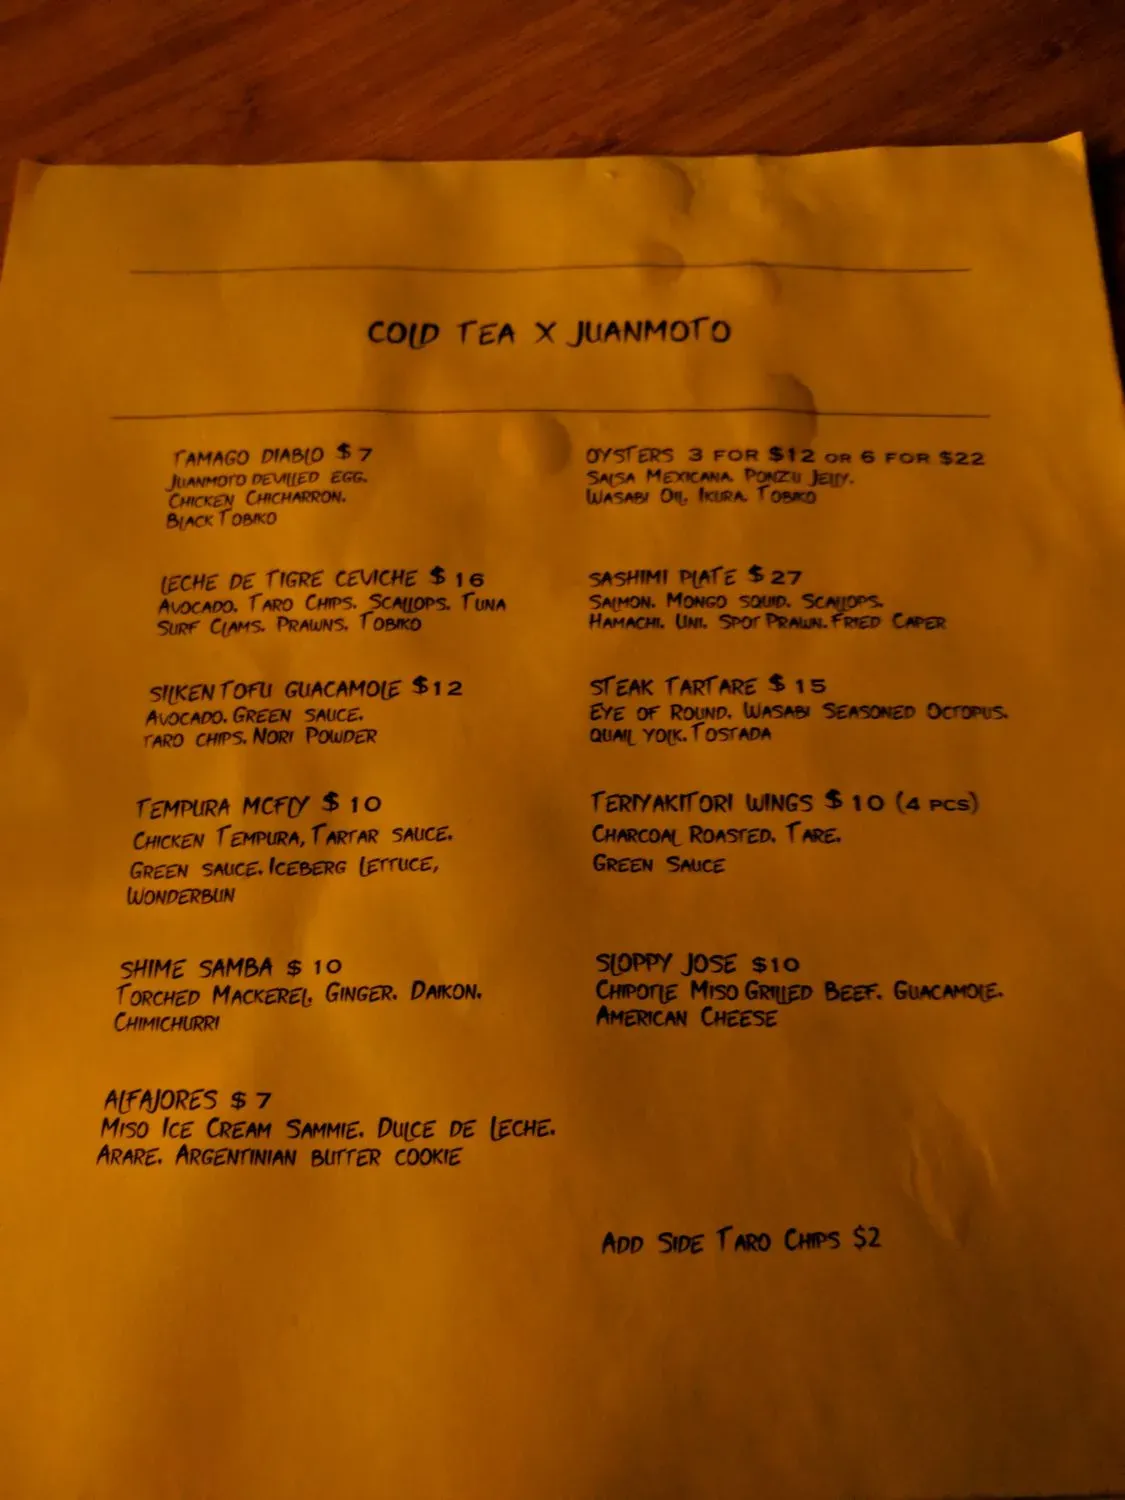 COLD TEA X JUANMOTO
TAMAGO DIABLO $7
JUANMOTO DEVILLED EGG.
CHICKEN CHICHARRON.
BLACK TOBIKO
LECHE DE TIGRE CEVICHE $16
AVOCADO. TARO CHIPS. SCALLOPS. TUNA
SURF CLAMS. PRAWNS. TOBIKO
SILKEN TOFU GUACAMOLE $12
AVOCADO. GREEN SAUCE.
TARO CHIPS. NORI POWDER
TEMPURA MCFLY $10
CHICKEN TEMPURA, TARTAR SAUCE.
GREEN SAUCE. ICEBERG LETTUCE,
WONDERBUN
SHIME SAMBA $10
TORCHED MACKEREL. GINGER. DAIKON.
CHIMICHURRI
ALFAJORES $7
MISO ICE CREAM SAMMIE. DULCE DE LECHE.
ARARE. ARGENTINIAN BUTTER COOKIE
OYSTERS 3 FOR $12 OR 6 FOR $22
SALSA MEXICANA. PONZU JELLY.
WASABI OIL. IKURA. TOBIKO
SASHIMI PLATE $27
SALMON. MONGO SQUID. SCALLOPS.
HAMACHI. UNI. SPOT PRAWN. FRIED CAPER
STEAK TARTARE $15
EYE OF ROUND. WASABI SEASONED OCTOPUS.
QUAIL YOLK. TOSTADA
TERIYAKITORI WINGS $10 (4 PCS)
CHARCOAL ROASTED. TARE.
GREEN SAUCE
SLOPPY JOSE $10
CHIPOTLE MISO GRILLED BEEF. GUACAMOLE.
AMERICAN CHEESE
ADD SIDE TARO CHIPS $2